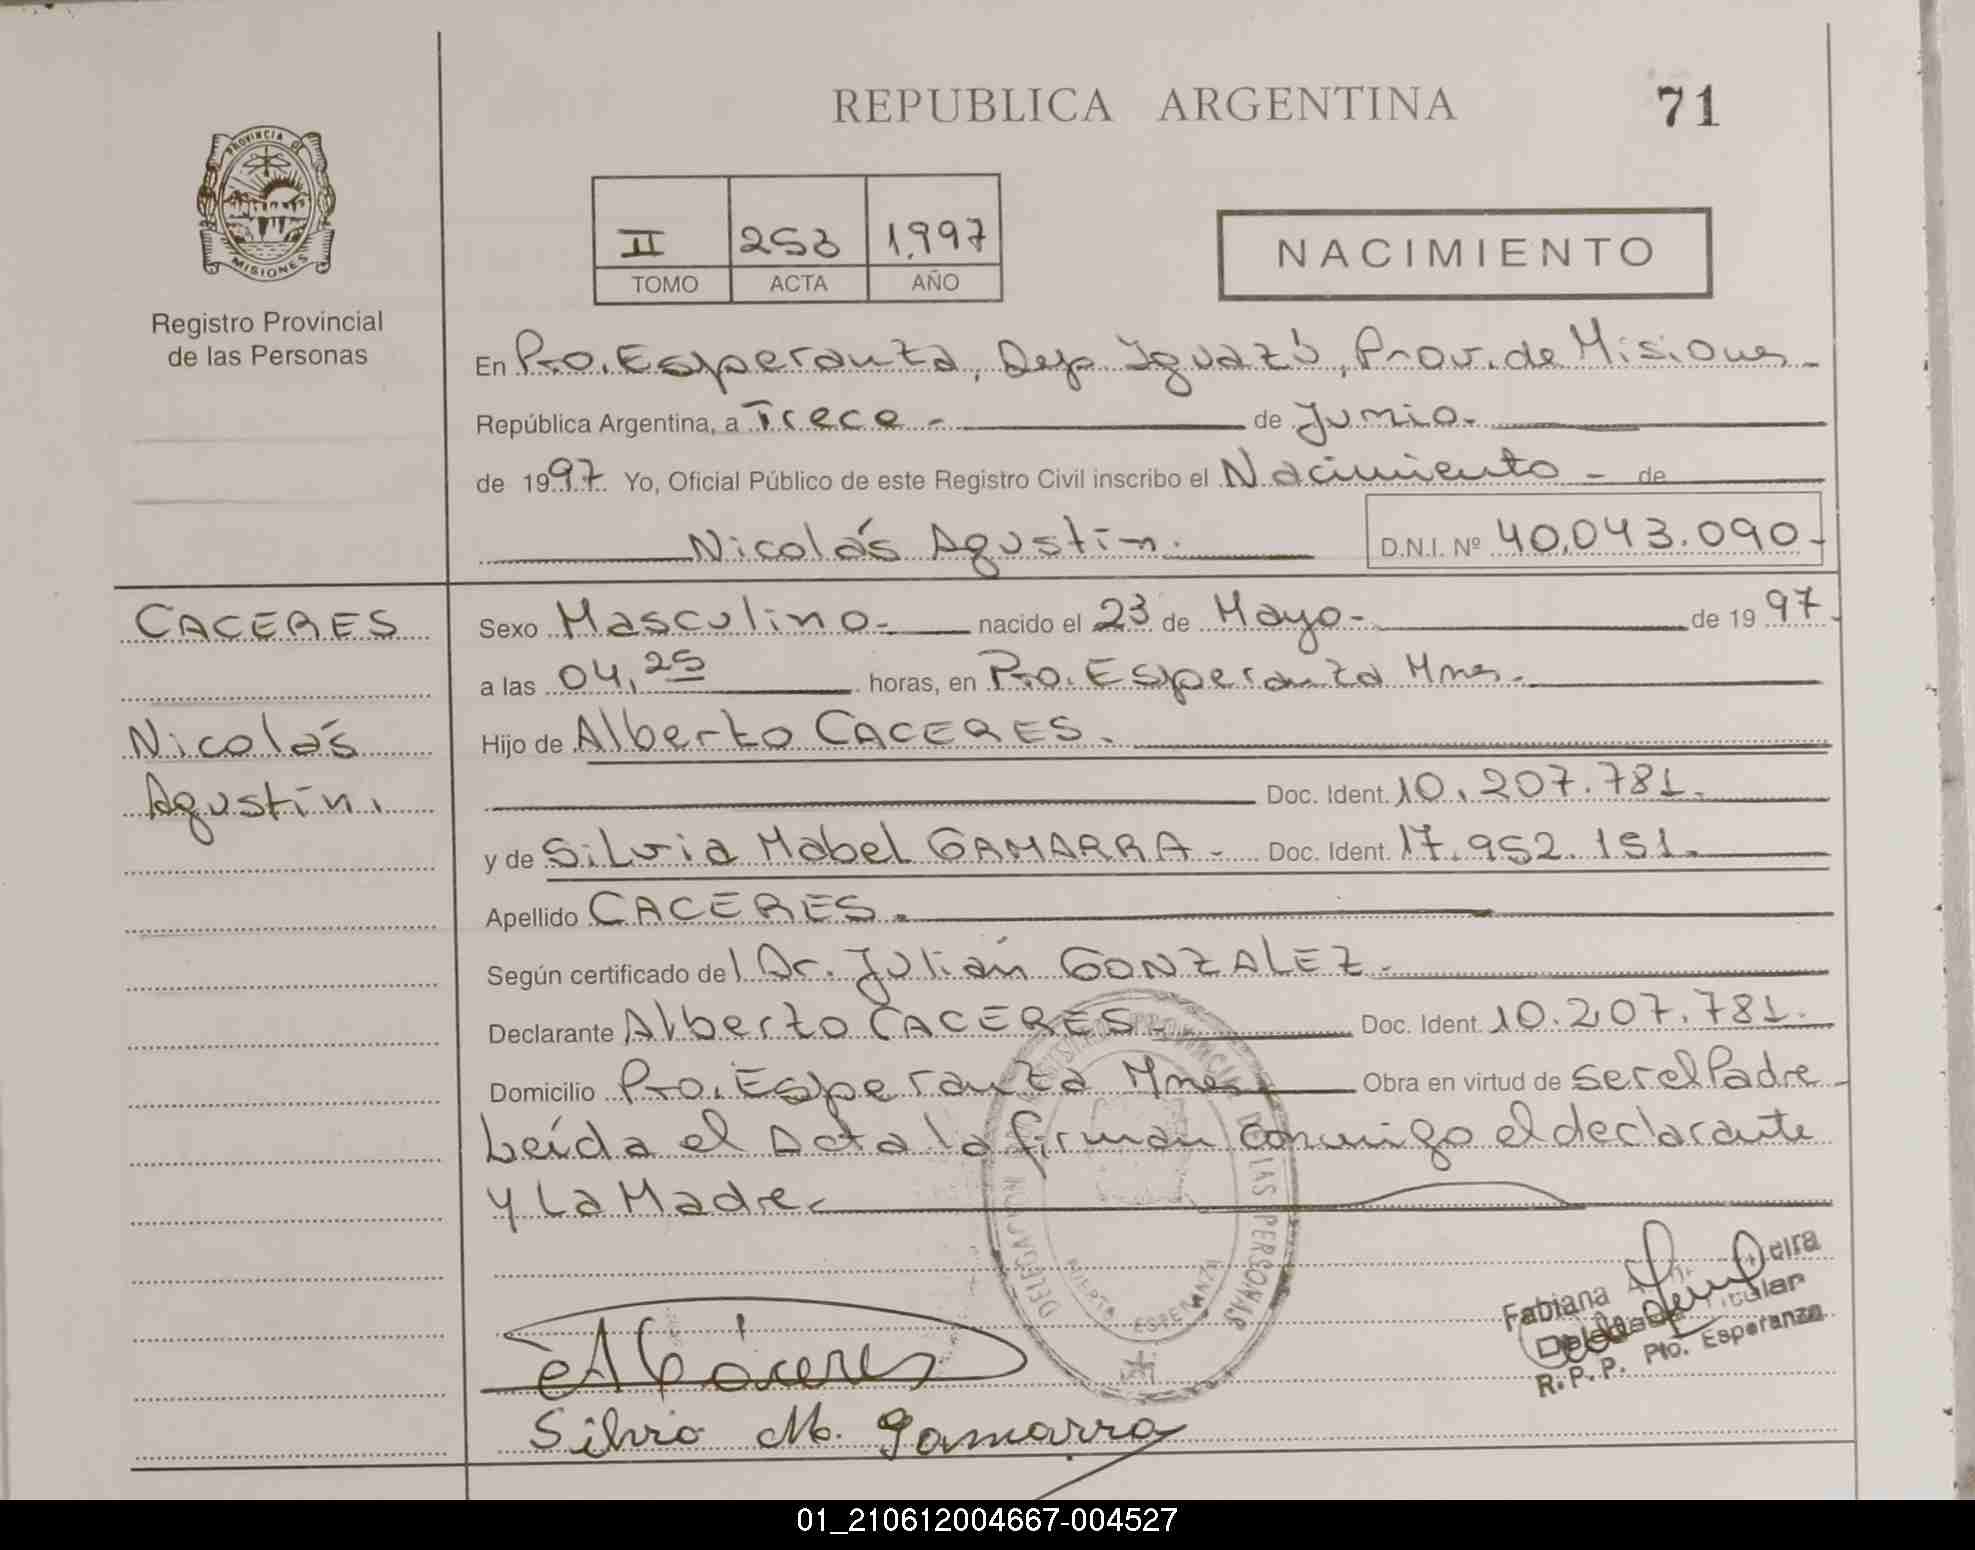 REPUBLICA ARGENTINA
71
PROVINCIA DE
MISIONES
Registro Provincial
de las Personas
II 253 1.997
TOMO ACTA AÑO
NACIMIENTO
En Pto. Esperanza, Dep. Iguazú, Prov. de Misiones -
República Argentina, a Trece - de Junio.
de 1997. Yo, Oficial Público de este Registro Civil inscribo el Nacimiento - de
Nicolás Agustín. D.N.I. Nº 40.043.090-
CACERES
Nicolás
Agustín.
Sexo Masculino.- nacido el 23 de Mayo- de 1997-
a las 04,25 horas, en Pto. Esperanza Mnes.
Hijo de Alberto CACERES.
Doc. Ident. 10.207.781.
y de Silvia Mabel GAMARRA - Doc. Ident. 17.952.151.
Apellido CACERES.
Según certificado del Dr. Julián GONZALEZ.
Declarante Alberto CACERES- Doc. Ident. 10.207.781.
Domicilio Pto. Esperanza Mnes Obra en virtud de ser el Padre-
Leída el Acta la firman conmigo el declarante
y La Madre.
PROVINCIAL DE LAS PERSONAS
PUERTO ESPERANZA
A Cáceres
Silvia M. Gamarra
Fabiana
Titular
R.P.P. Pto. Esperanza
01_210612004667-004527